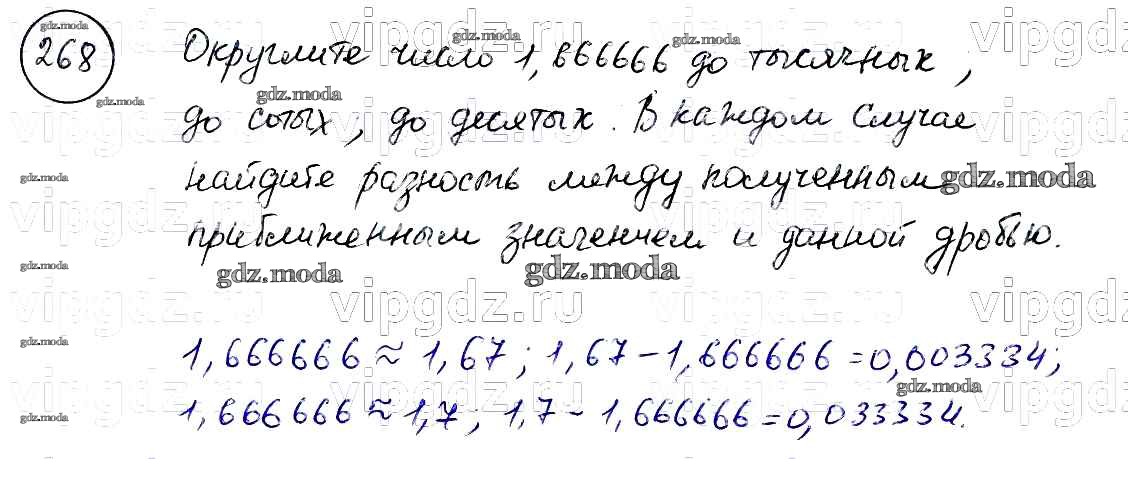 268
Округлите число 1,666666 до тысячных,
до сотых, до десятых. В каждом случае
найдите разность между полученным
приближенным значением и данной дробью.
1,666666 ≈ 1,67; 1,67 - 1,666666 = 0,003334;
1,666666 ≈ 1,7; 1,7 - 1,666666 = 0,033334.
gdz.moda
vipgdz.ru